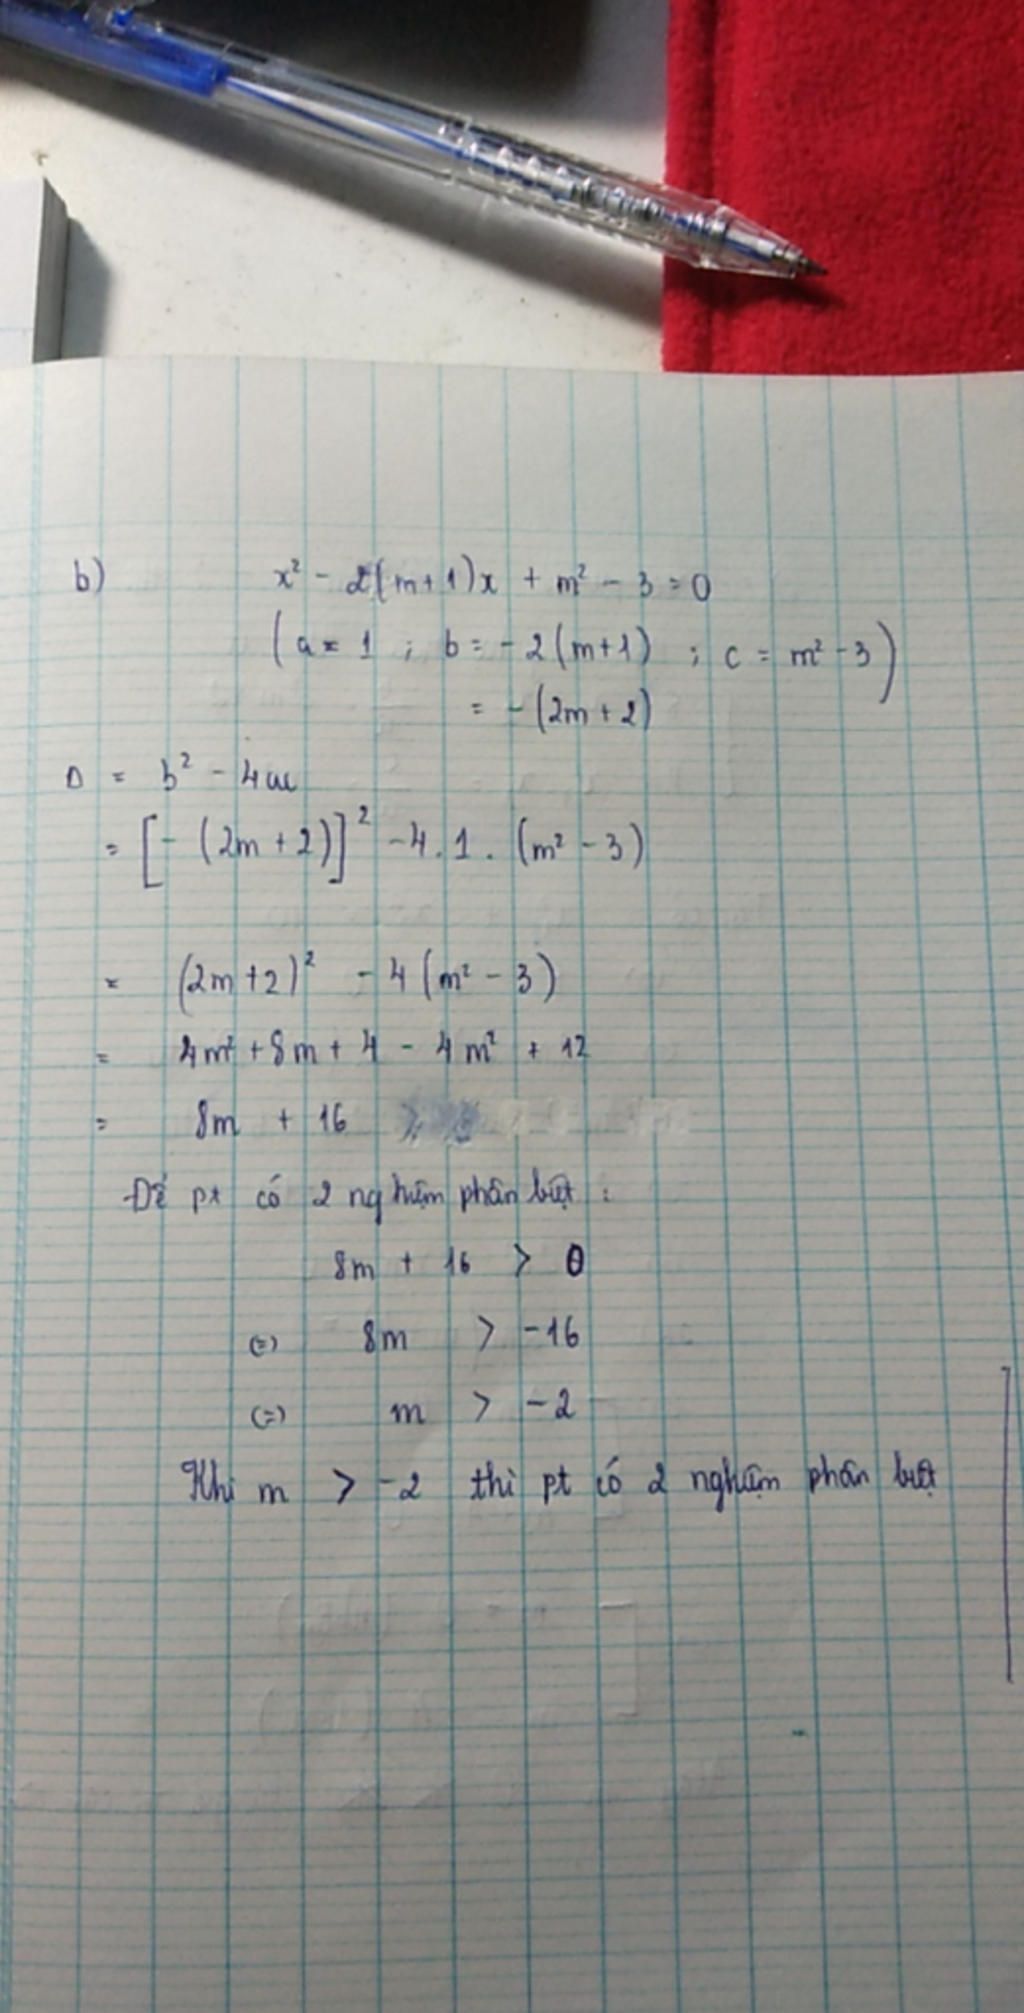 b) x² - 2(m+1)x + m² - 3 = 0
(a = 1 ; b = -2(m+1) ; c = m² - 3)
= -(2m + 2)
Δ = b² - 4ac
= [-(2m + 2)]² - 4.1.(m² - 3)
= (2m + 2)² - 4(m² - 3)
= 4m² + 8m + 4 - 4m² + 12
= 8m + 16
Để pt có 2 nghiệm phân biệt :
8m + 16 > 0
(=) 8m > -16
(=) m > -2
Khi m > -2 thì pt có 2 nghiệm phân biệt